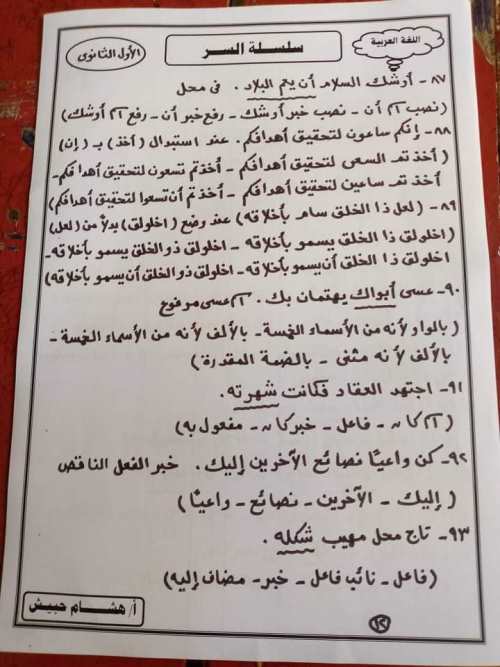 اللغة العربية
سلسلة السر
الأول الثانوى
٨٧- أوشك السلام أن يعم البلاد . فى محل
(نصب اسم أن - نصب خبر أوشك - رفع خبر أن - رفع اسم أوشك)
٨٨- إنكم ساعون لتحقيق أهدافكم. عند استبدال (أخذ) بـ (إن)
(أخذتم السعى لتحقيق أهدافكم - أخذتم تسعون لتحقيق أهدافكم -
أخذتم ساعين لتحقيق أهدافكم - أخذتم أن تسعوا لتحقيق أهدافكم)
٨٩- (لعل ذا الخلق سامٍ بأخلاقه) عند وضع (اخلولق) بدلاً من (لعل)
(اخلولق ذا الخلق يسمو بأخلاقه - اخلولق ذو الخلق يسمو بأخلاقه -
اخلولق ذا الخلق أن يسمو بأخلاقه - اخلولق ذو الخلق أن يسمو بأخلاقه)
٩٠- عسى أبواك يهتمان بك . اسم عسى مرفوع
(بالواو لأنه من الأسماء الخمسة - بالألف لأنه من الأسماء الخمسة -
بالألف لأنه مثنى - بالضمة المقدرة)
٩١- اجتهد العقاد فكانت شهرته .
(اسم كان - فاعل - خبر كان - مفعول به)
٩٢- كن واعيًا نصائح الآخرين إليك . خبر الفعل الناقص
(إليك - الآخرين - نصائح - واعيًا)
٩٣- تاج محل مهيب شكله .
(فاعل - نائب فاعل - خبر - مضاف إليه)
أ/ هشام حبيش